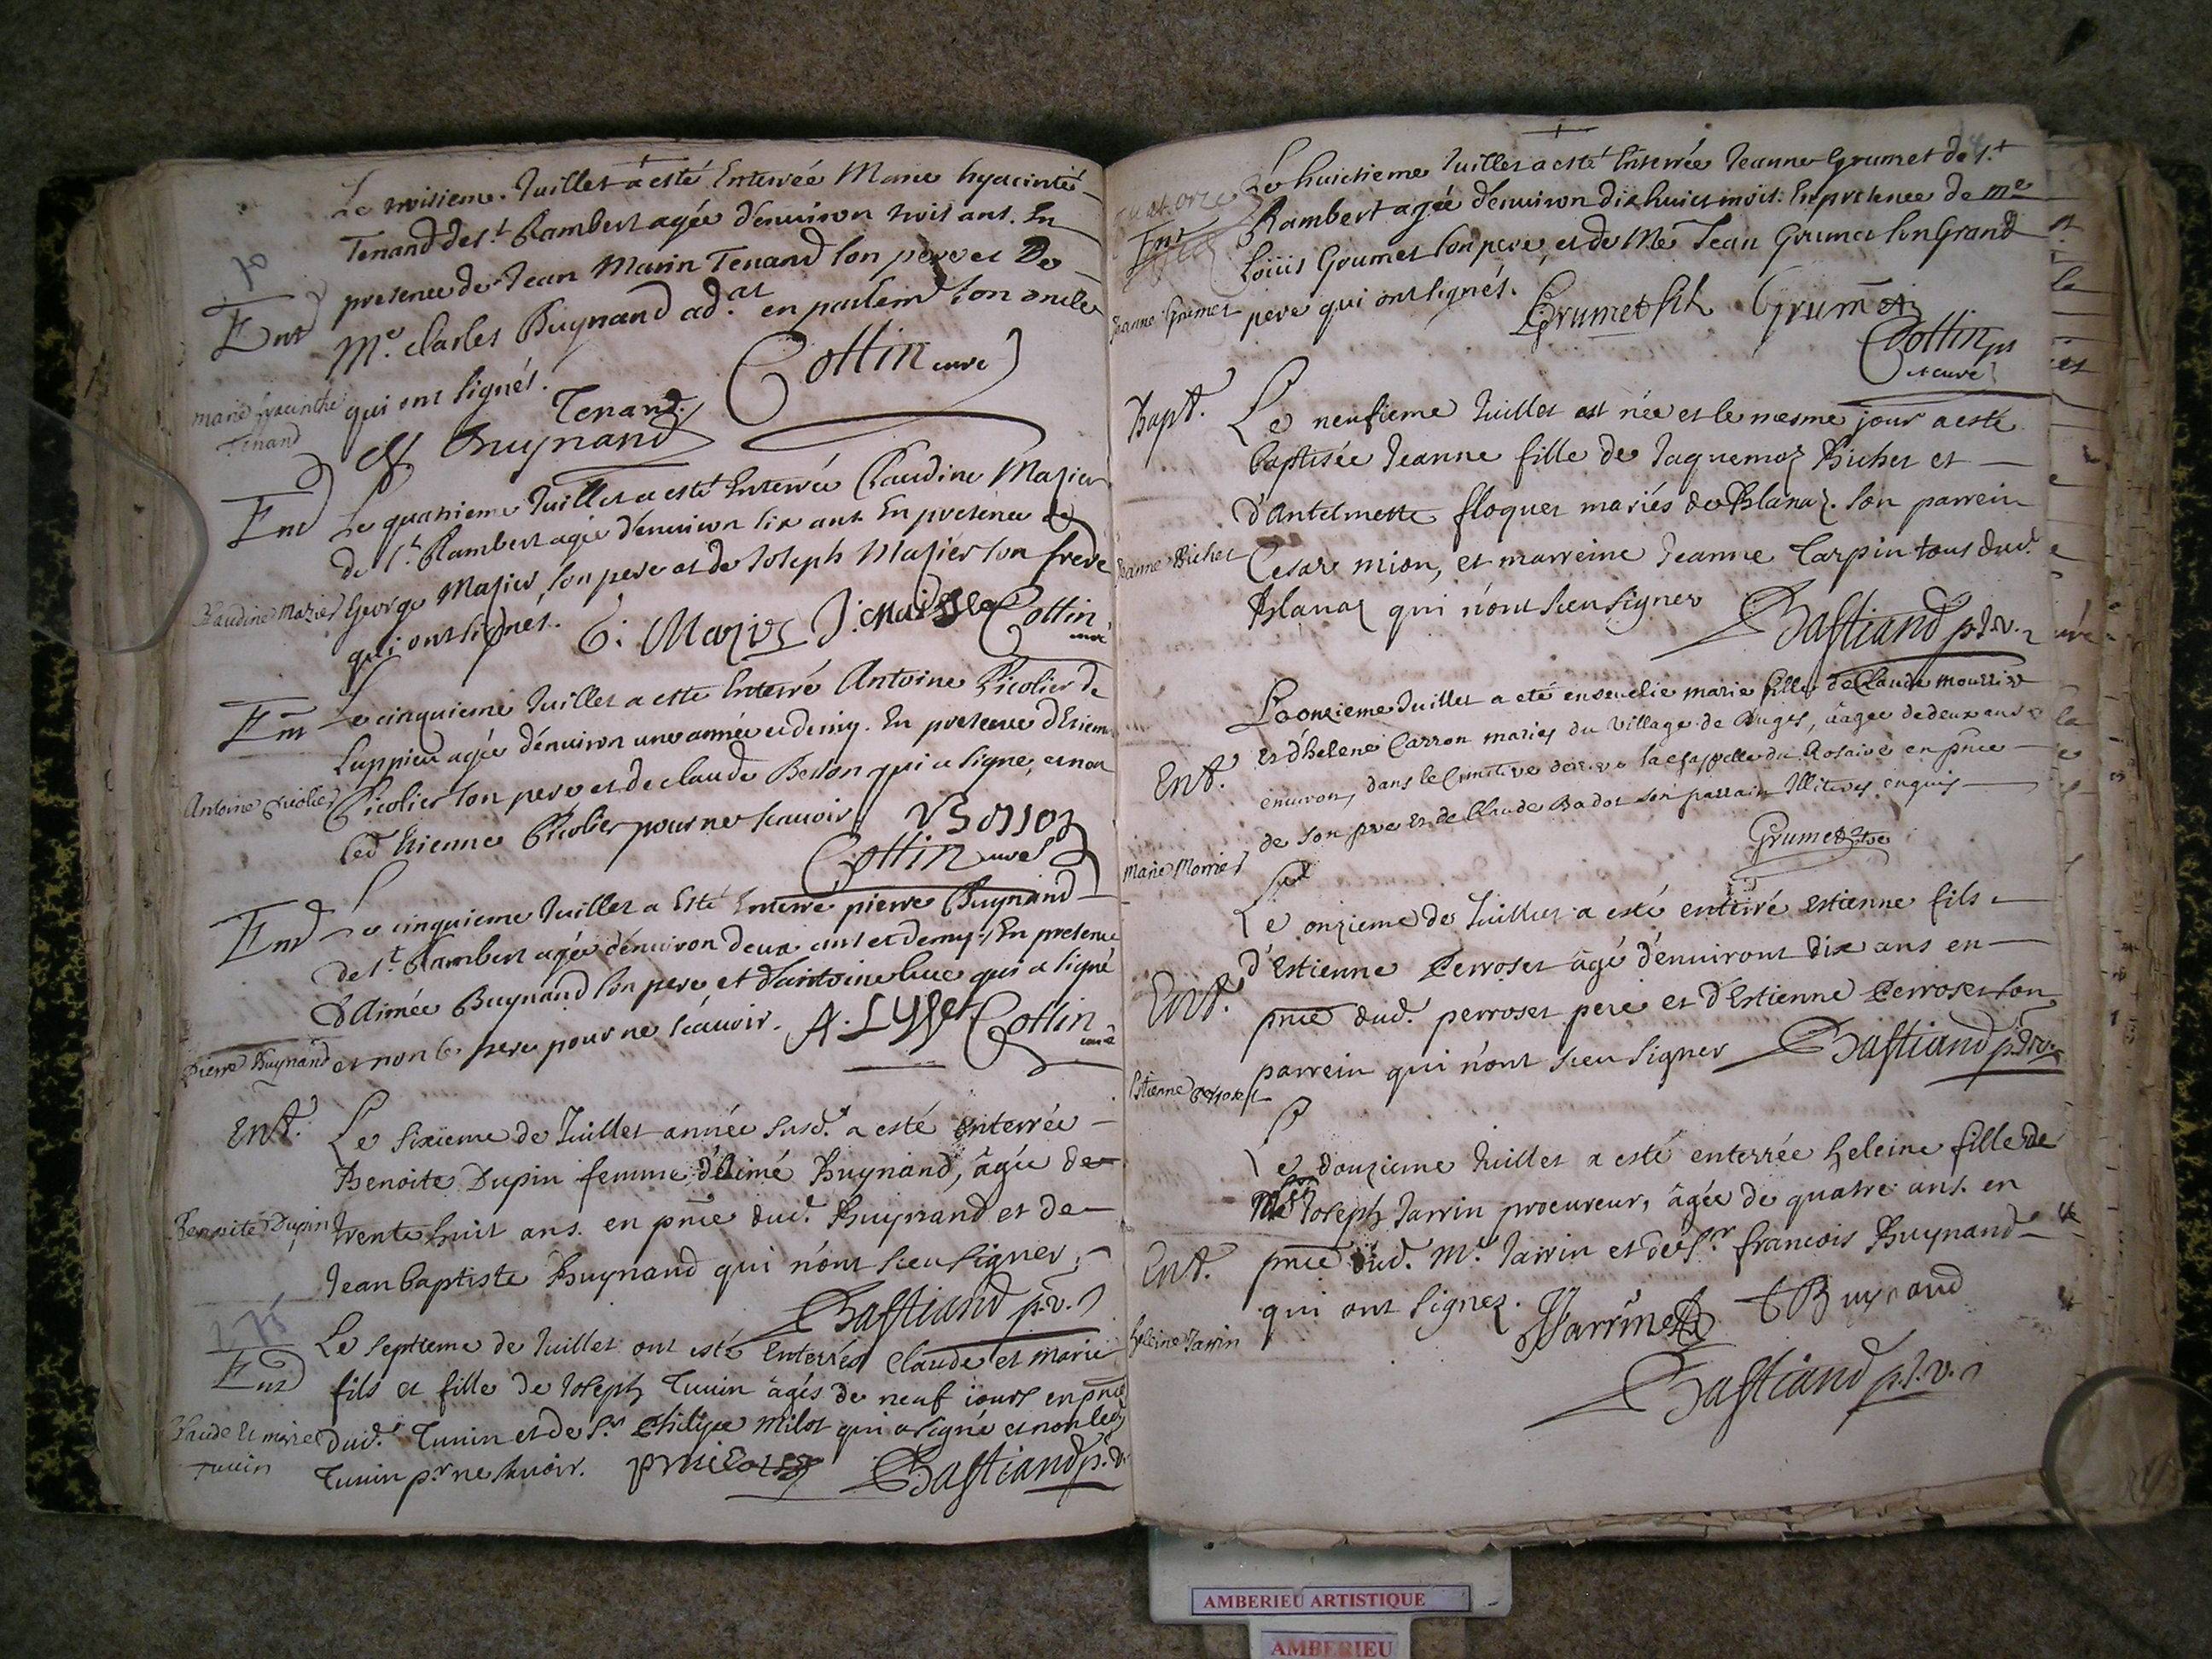 Le troisieme Juillet a esté Enterrée Marie hyacinte
Tenand de s.t Rambert agée d'enuiron trois ans. En
presence de Jean Marin Tenand son pere et De
M.e Charles Buynand ad.at en parlem.t son oncle
qui ont signés.
Ent
marie hyacinthe
Tenand
Tenand
Cottin curé
Ch Buynand
Ent
Le quatrieme Juillet a esté Enterrée Claudine Mazier
de s.t Rambert agée d'enuiron six ans. En presence de
George Mazier, son pere et de Joseph Mazier son frere
qui ont signés.
Claudine Mazier
G. Mazier
Cottin
curé
Ent
Le cinquieme Juillet a esté Enterré Antoine Picolier de
Luppieu agée d'enuiron une année et demy. En presence d'Etienne
Picolier son pere et de claude Besson qui a signé, et non
led Etienne Picolier pour ne scauoir
Antoine Picolier
Besson
Cottin curé
Ent
Le cinquieme Juillet a Esté Enterré pierre Buynand
de s.t Rambert agée d'enuiron deux ans et demy. En presence
d'Aimée Buynand son pere et d'antoine qui a signé
et non le pere pour ne scauoir.
Pierre Buynand
Cottin
curé
Ent.
Le sixieme de Juillet année susd. a esté enterrée
Benoite Dupin femme d'Aimé Buynand, âgée de
trente huit ans. en pnce dud. Buynand et de
Jean baptiste Buynand qui n'ont sceu signer.
Benoite Dupin
Bastiand p.v.
Ent
Le septieme de Juillet ont esté Enterrés Claude et marie
fils et fille de Joseph Tunin âgés de neuf iours en pnce
dud. Tunin et de s.r Philipe Milot qui a signé et non led
Tunin p.r ne scauoir.
Claude Et marie
Tunin
Bastiand p.v.
quatorze
Le huictieme Juillet a esté Enterrée Jeanne Grumet de s.t
Rambert agée d'enuiron dix huict mois. En presence de me
Loüis Grumet son pere, et de Me Jean Grumet son Grand
pere qui ont signés.
Ent
Jeanne Grumet
Grumet fils Grumet
Cottin
et curé
Bapt.
Le neufieme Juillet est née et le mesme jour a esté
baptisée Jeanne fille de Jaquemoz Bichet et
d'Antelmette floquet mariés de Blanaz. son parrein
Cesar mion, et marreine Jeanne Carpin tous dud.
Blanaz qui n'ont sceu signer
Jeanne Bichet
Bastiand p.v.
Le onzieme Juillet a eté enseuelie marie fille de Claude mourrier
et d'helene Carron mariés du village de Buges, âagée de deux ans
environ, dans le Cimetiere la chappelle du Rosaire en pnce
de son pere et de Claude Badot son parrain Illiteres enquis
Ent.
Marie Morrier
Grumet
Le onzieme de Juillet a esté enterré estienne fils
d'Estienne Perroset âgé d'enuiront dix ans en
pnce dud. perroset pere et d'Estienne Perroset son
parrein qui n'ont sceu signer
Ent.
Estienne Perroset
Bastiand p.v.
Le douzieme Juillet a esté enterrée heleine fille de
Me Joseph Jarrin procureur, âgée de quatre ans. en
pnce dud. M.e Jarrin et de s.r francois Buynand
qui ont signez.
Ent.
heleine Jarrin
Jarrin Buynand
Bastiand p.v.
AMBERIEU ARTISTIQUE
AMBERIEU